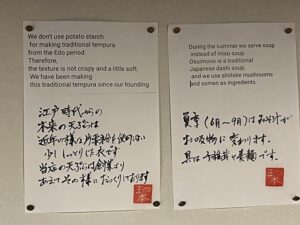 We don't use potato starch
for making traditional tempura
from the Edo period.
Therefore,
the texture is not crispy and a little soft.
We have been making
this traditional tempura since our founding.
江戸時代からの
本来の天ぷらは
近年の様な片栗粉を使用しない
少ししっとりした衣です
当店の天ぷらは創業より
あえてその様につくっております
During the summer we serve soup
instead of miso soup.
Osuimono is a traditional
Japanese dashi soup,
and we use shiitake mushrooms
and somen as ingredients.
夏季(6月〜9月)はみそ汁が
お吸物に変わります。
具は椎茸と素麺です。